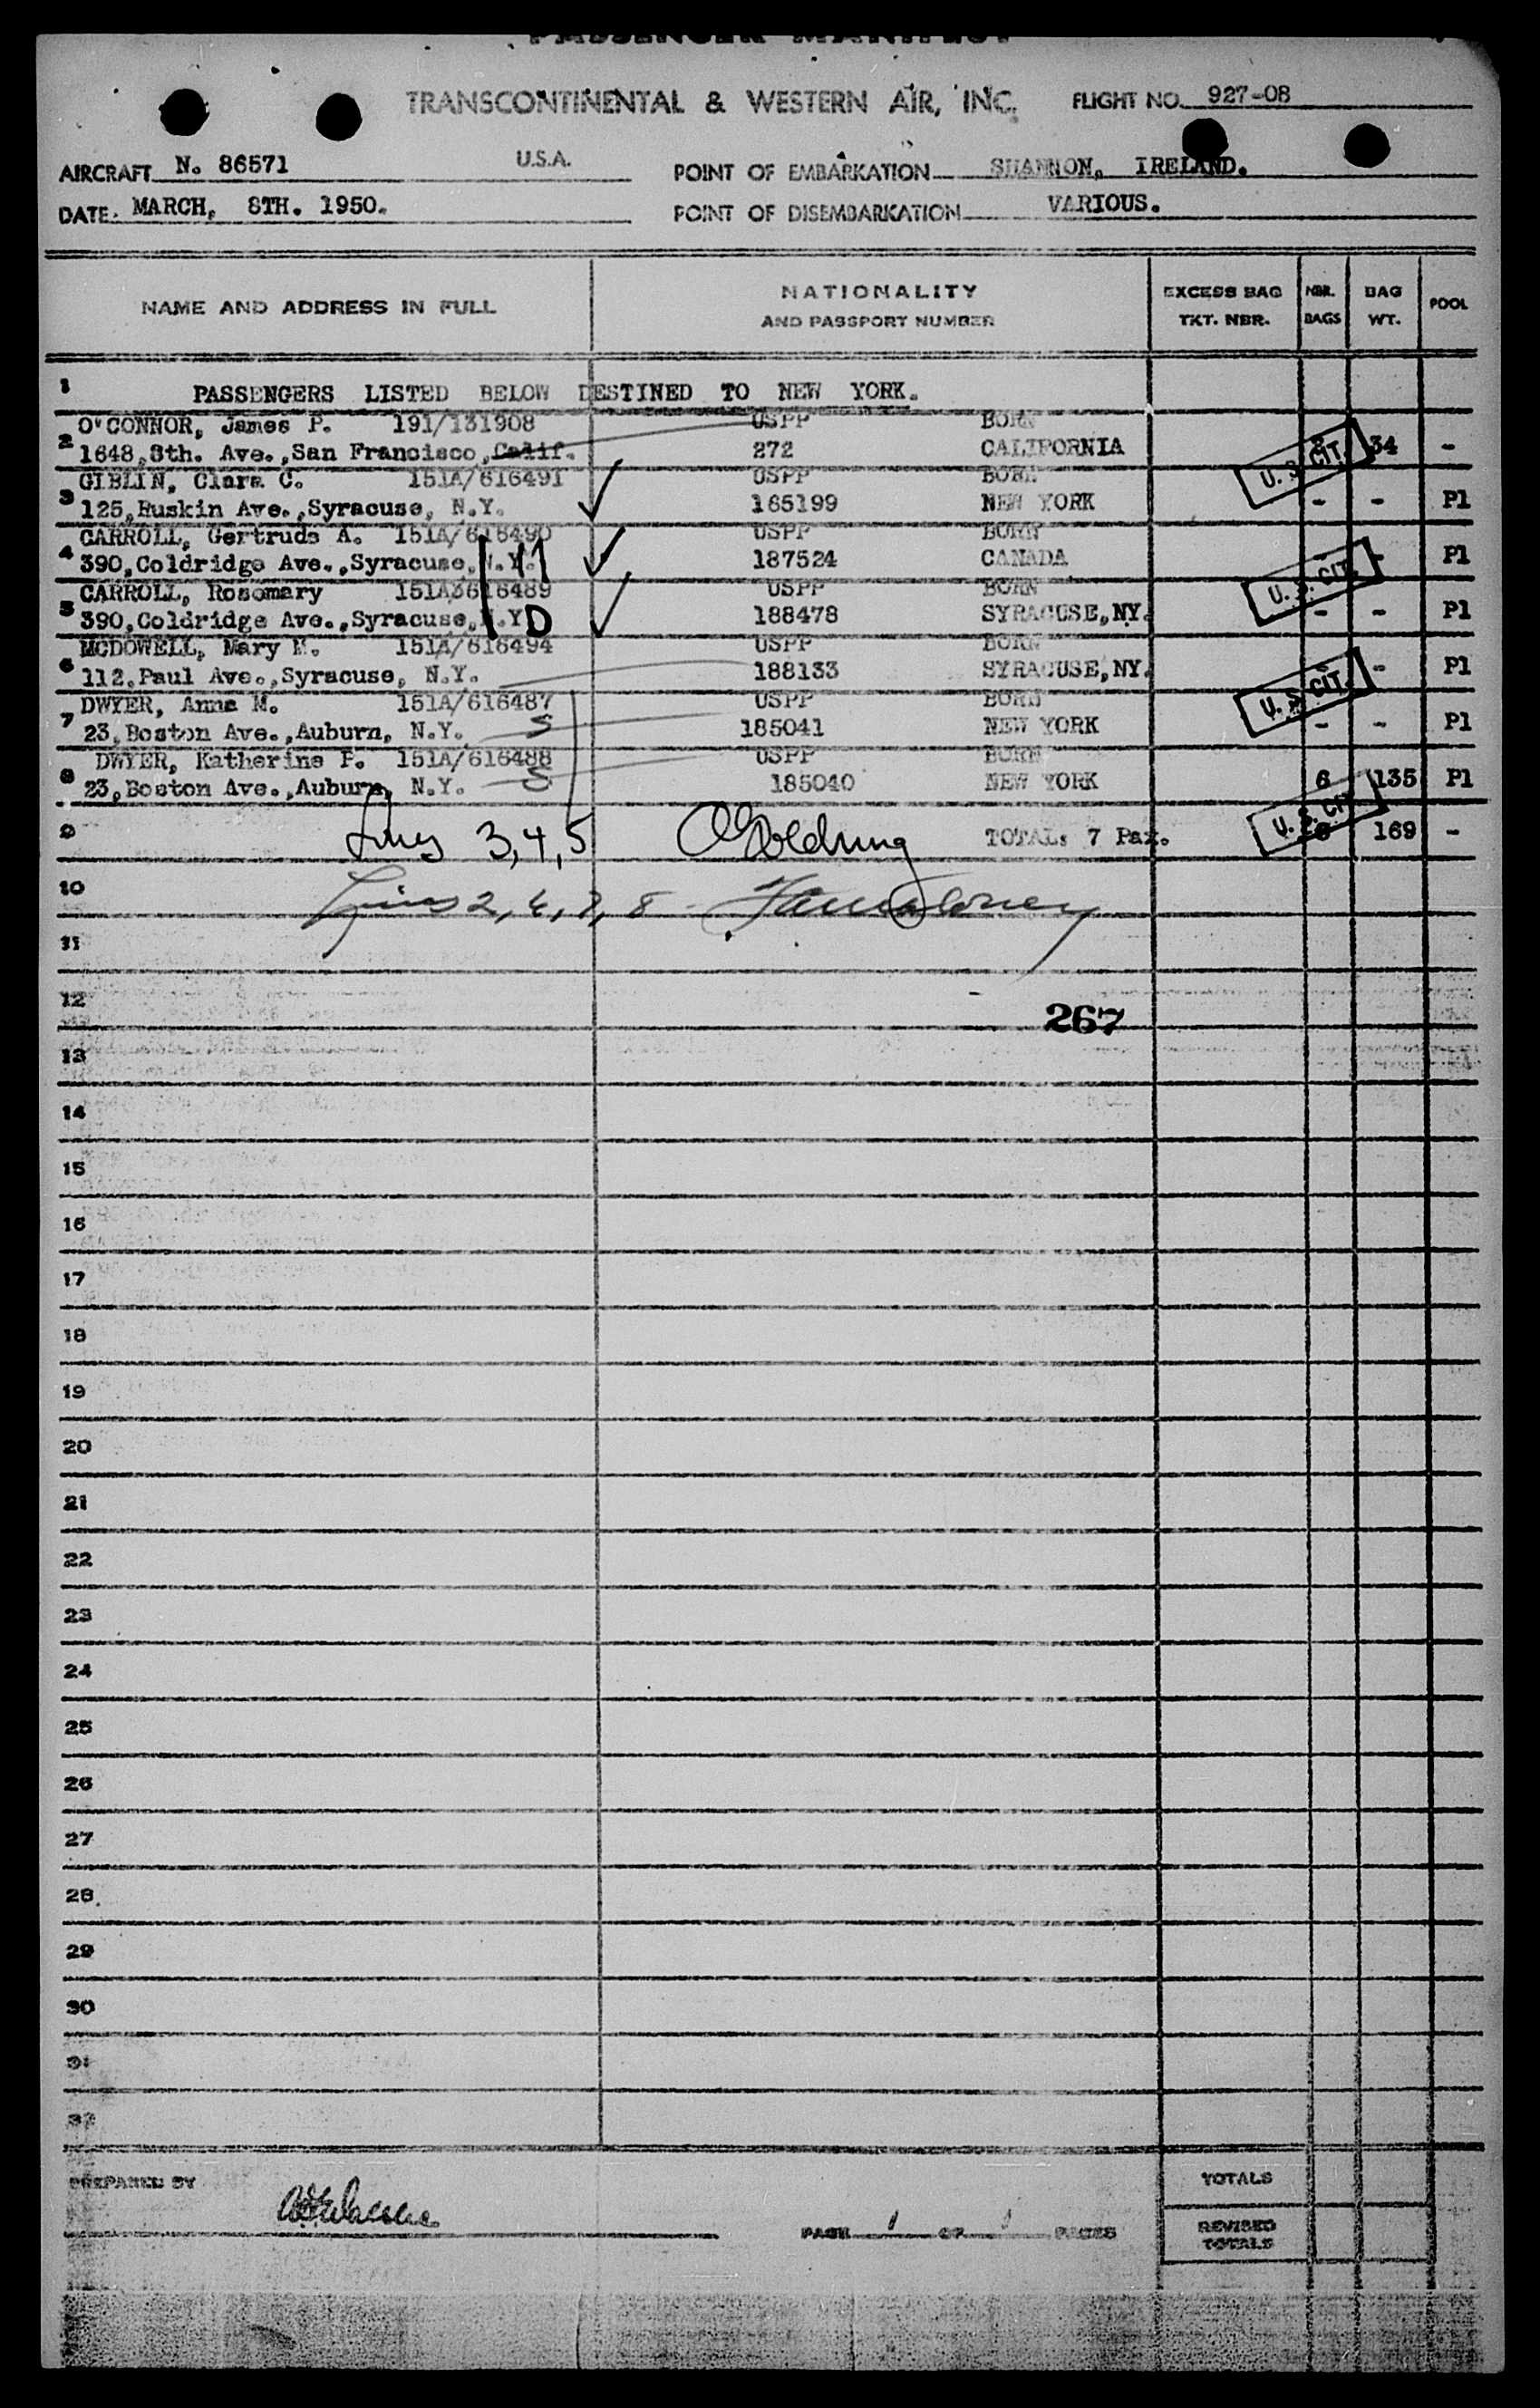 PASSENGER MANIFEST
TRANSCONTINENTAL & WESTERN AIR, INC. FLIGHT NO. 927-08
AIRCRAFT No. 86571 U.S.A. POINT OF EMBARKATION SHANNON, IRELAND.
DATE: MARCH, 8TH. 1950. POINT OF DISEMBARKATION VARIOUS.
NAME AND ADDRESS IN FULL NATIONALITY AND PASSPORT NUMBER EXCESS BAG TKT. NBR. NBR. BAGS BAG WT. POOL
1 PASSENGERS LISTED BELOW DESTINED TO NEW YORK.
O'CONNOR, James P. 191/131908 USPP BORN
2 1648,8th. Ave.,San Francisco,Calif. 272 CALIFORNIA U. S. CIT. 34 -
GIBLIN, Clara C. 151A/616491 USPP BORN
3 125,Ruskin Ave.,Syracuse, N.Y. 165199 NEW YORK - - P1
CARROLL, Gertrude A. 151A/616490 USPP BORN
4 390,Coldridge Ave.,Syracuse, N.Y. 187524 CANADA U. S. CIT. - P1
CARROLL, Rosemary 151A3616489 USPP BORN
5 390,Coldridge Ave.,Syracuse, N.Y D 188478 SYRACUSE,NY. - - P1
MCDOWELL, Mary M. 151A/616494 USPP BORN
6 112,Paul Ave.,Syracuse, N.Y. 188133 SYRACUSE,NY. U. S. CIT. - P1
DWYER, Anna M. 151A/616487 USPP BORN
7 23,Boston Ave.,Auburn, N.Y. S 185041 NEW YORK - - P1
DWYER, Katherine F. 151A/616488 USPP BORN
8 23,Boston Ave.,Auburn, N.Y. S 185040 NEW YORK 6 135 P1
9 Lines 3,4,5 Goldring TOTAL: 7 Pax. U. S. CIT. 169 -
10 Lines 2, 6, 7, 8
11
12
267
13
14
15
16
17
18
19
20
21
22
23
24
25
26
27
28
29
30
31
32
PREPARED BY TOTALS
PAGE 1 OF 1 PAGES REVISED TOTALS